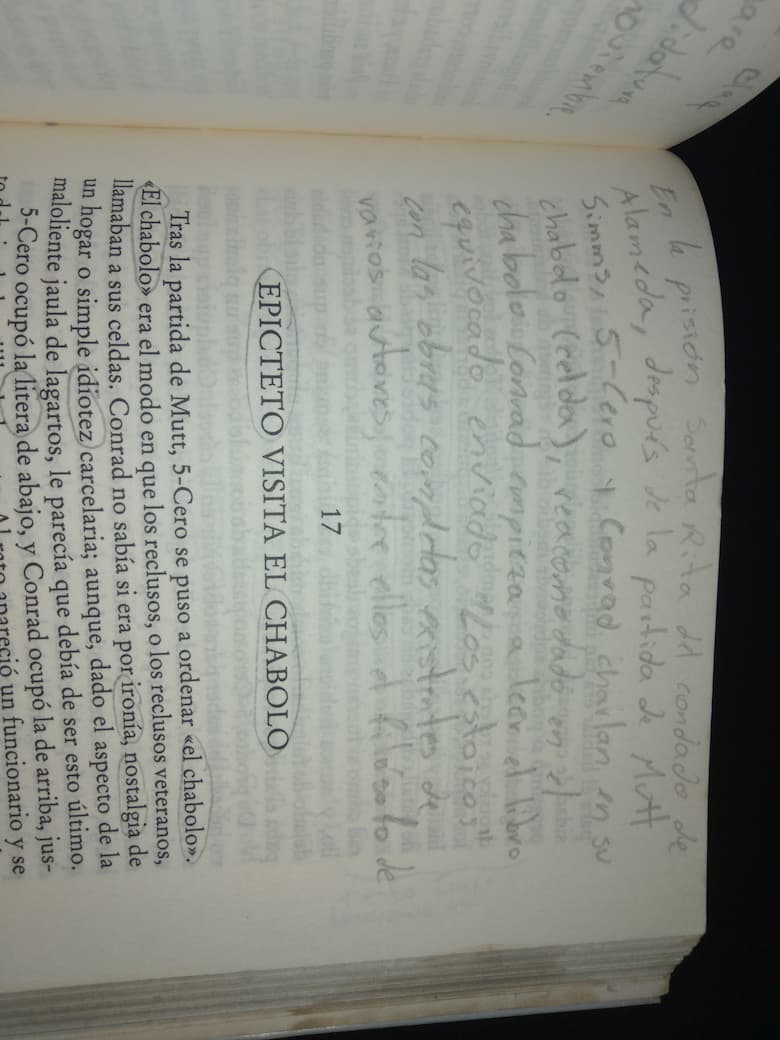 didatura
noviembre.
En la prisión Santa Rita del condado de
Alameda, después de la partida de Mutt
Simms, 5-Cero y Conrad charlan en su
chabolo (celda), reacomodado en el
chabolo Conrad empieza a leer el libro
equivocado enviado "Los estoicos"
con las obras completas existentes de
varios autores, entre ellos el filósofo de
17
EPICTETO VISITA EL CHABOLO
Tras la partida de Mutt, 5-Cero se puso a ordenar «el chabolo».
«El chabolo» era el modo en que los reclusos, o los reclusos veteranos,
llamaban a sus celdas. Conrad no sabía si era por ironía, nostalgia de
un hogar o simple idiotez carcelaria; aunque, dado el aspecto de la
maloliente jaula de lagartos, le parecía que debía de ser esto último.
5-Cero ocupó la litera de abajo, y Conrad ocupó la de arriba, jus-
apareció un funcionario y se